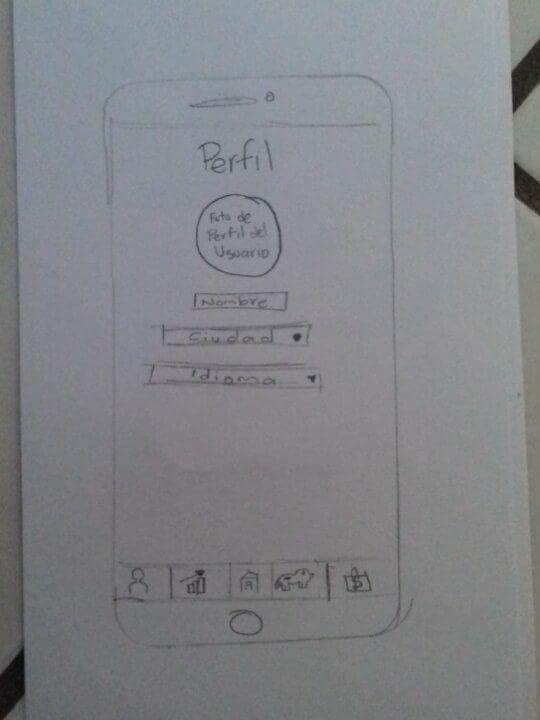 Perfil
Foto de
Perfil del
Usuario
Nombre
Ciudad
Idioma